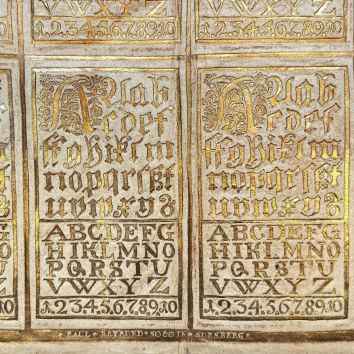 VWXYZ
1.2.3.4.5.6.7.8.9.10
VWXYZ
1.2.3.4.5.6.7.8.9.10
Aab
cdef
ffghiklm
nopqrsßt
uvwxyz
ABCDEFG
HIKLMNO
PQRSTU
VWXYZ
1.2.3.4.5.6.7.8.9.10
Aab
cdef
ffghiklm
nopqrsßt
uvwxyz
ABCDEFG
HIKLMNO
PQRSTU
VWXYZ
1.2.3.4.5.6.7.8.9.10
PAUL * REYMUND * NO